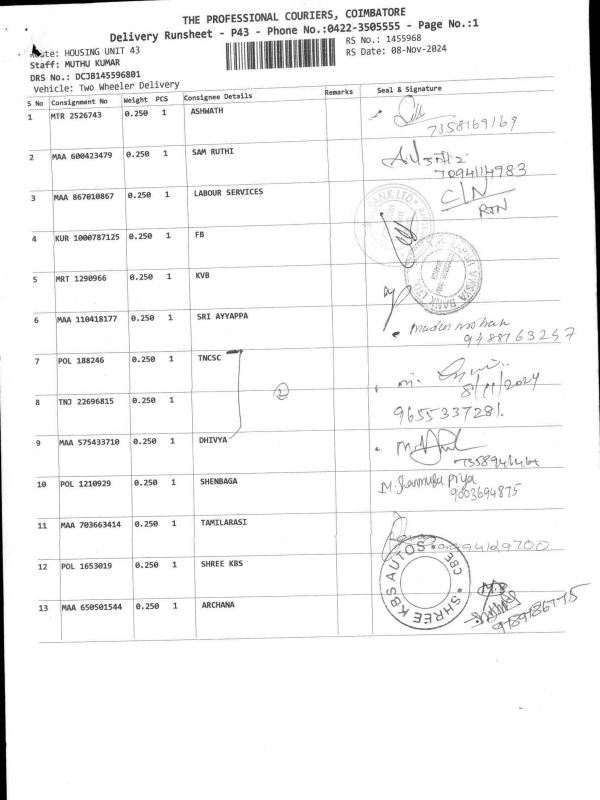 THE PROFESSIONAL COURIERS, COIMBATORE
Delivery Runsheet - P43 - Phone No.:0422-3505555 - Page No.:1
Route: HOUSING UNIT 43
RS No.: 1455968
Staff: MUTHU KUMAR
RS Date: 08-Nov-2024
DRS No.: DCJB145596801
Vehicle: Two Wheeler Delivery
S No Consignment No Weight PCS Consignee Details Remarks Seal & Signature
1 MTR 2526743 0.250 1 ASHWATH
7358169169
2 MAA 600423479 0.250 1 SAM RUTHI
7094114983
3 MAA 867010867 0.250 1 LABOUR SERVICES
C/N
RTN
4 KUR 1000787125 0.250 1 FB
5 MRT 1290966 0.250 1 KVB
6 MAA 110418177 0.250 1 SRI AYYAPPA
madan mohan
9488763257
7 POL 188246 0.250 1 TNCSC
8/11/2024
8 TNJ 22696815 0.250 1
2
9655337281
9 MAA 575433710 0.250 1 DHIVYA
10 POL 1210929 0.250 1 SHENBAGA
M. Shanmuga Priya
9003694875
11 MAA 703663414 0.250 1 TAMILARASI
9994129700
12 POL 1653019 0.250 1 SHREE KBS
SHREE KBS AUTOS * CBE *
13 MAA 650501544 0.250 1 ARCHANA
9789786775